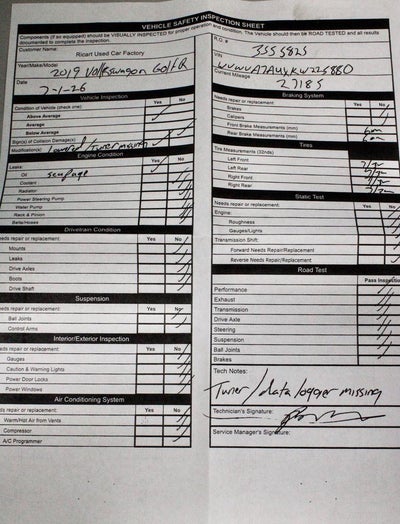 VEHICLE SAFETY INSPECTION SHEET
Components (if so equipped) should be VISUALLY INSPECTED for proper operation and condition. The Vehicle should then be ROAD TESTED and all results
documented to complete the inspection.
Customer Name:
Ricart Used Car Factory
Year/Make/Model
2019 Volkswagon Golf R
Date
7-1-26
Vehicle Inspection
Condition of Vehicle (check one) Yes No
Above Average
Average
Below Average
Sign(s) of Collision Damage(s)
Modification(s) Lowered / Tuner missing
Engine Condition
Leaks: Yes No
Oil seepage
Coolant
Radiator
Power Steering Pump
Water Pump
Rack & Pinion
Belts/Hoses
Drivetrain Condition
eeds repair or replacement: Yes No
Mounts
Leaks
Drive Axles
Boots
Drive Shaft
Suspension
eeds repair or replacement: Yes No
Ball Joints
Control Arms
Interior/Exterior Inspection
eeds repair or replacement: Yes No
Gauges
Caution & Warning Lights
Power Door Locks
Power Windows
Air Conditioning System
ds repair or replacement: Yes No
Warm/Hot Air from Vents
Compressor
A/C Programmer
R.O. #
3555825
VIN
Current Mileage
27185
Braking System
Needs repair or replacement: Yes No
Brakes
Calipers
Front Brake Measurements (mm) 6m
Rear Brake Measurements (mm) 6m
Tires
Tire Measurements (32nds)
Left Front
Left Rear
Right Front
Right Rear
Static Test
Needs repair or replacement: Yes No
Engine:
Roughness
Gauges/Lights
Transmission Shift:
Forward Needs Repair/Replacement
Reverse Needs Repair/Replacement
Road Test
Pass Inspection
Performance
Exhaust
Transmission
Drive Axle
Steering
Suspension
Ball Joints
Brakes
Tech Notes:
Tuner / data logger missing
Technician's Signature:
Service Manager's Signature: